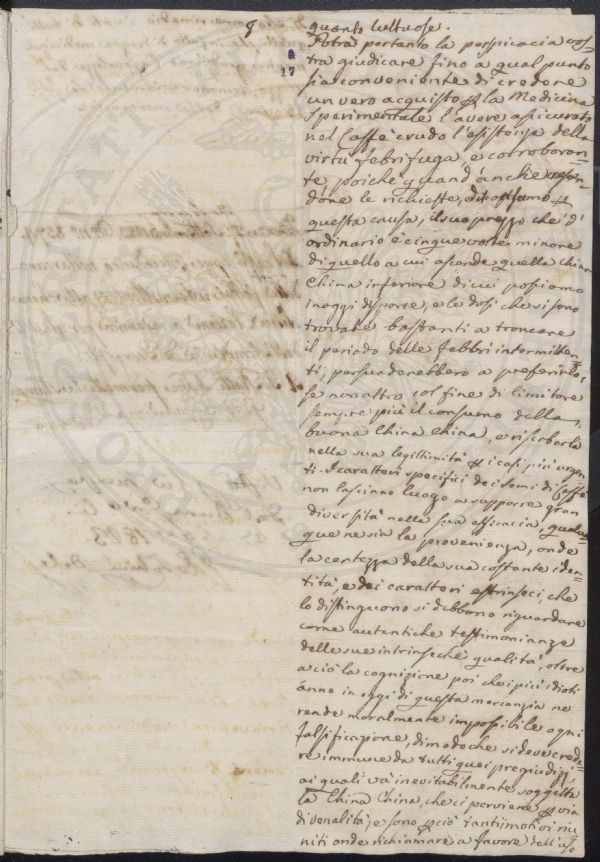 8
17
quanto luttuose.
Potrà pertanto la perspicacia vos
tra giudicare fino a qual punto
sia conveniente di credere
un vero acquisto p la Medicina
Sperimentale l'avere assicurato
nel Caffè crudo l'esistenza della
virtù febrifuga, e corroboran=
te, poiche quand'anche
done le richieste,
questa causa, il suo prezzo che d'
ordinario è cinque volte minore
di quello a cui ascende quella china
China inferiore di cui possiamo
inoggi disporre, e le dosi che si sono
trovate bastanti a troncare
il periodo delle febbri intermitten=
ti, persuaderebbero a preferirlo,
se non altro col fine di limitare
sempre più il consumo della
buona China China, e riserbarla
nella sua legittimità p i casi più urgen
ti. I caratteri specifici dei semi di Caffè
non lasciano luogo a supporre gran
diversità nella sua efficacia, qualun
que ne sia la provenienza, onde
la certezza della sua costante iden=
tità, e dei caratteri estrinseci, che
lo distinguono si debbono riguardare
come autentiche testimonianze
delle sue intrinseche qualità, oltre
a ciò la cognizione poi che i più idioti
ànno in oggi di questa mercanzia ne
rende moralmente impossibile ogni
falsificazione, dimodoche si deve crede=
re immune da tutti quei pregiudizj,
ai quali và inevitabilmente soggetta
la China China, che ci perviene p via
di venalità, e sono pciò tanti motivi riu
niti onde richiamare a favore dell'uso